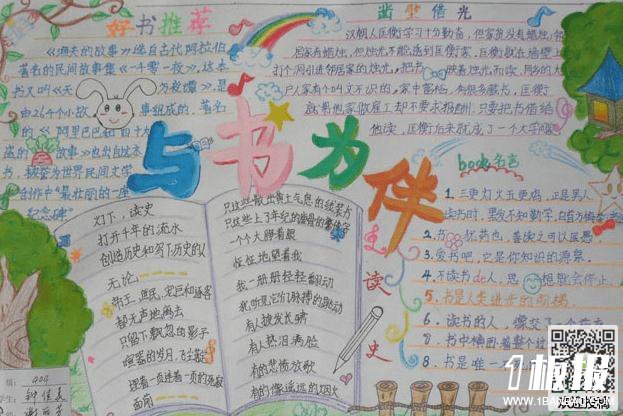 好书推荐
《渔夫的故事》选自古代阿拉伯
著名的民间故事集《一千零一夜》,这本
书又叫《天方夜谭》,是
由264个小故事组成的,著名
的《阿里巴巴和四十大
盗的故事》也出自这本
书,被誉为世界民间文学
创作中"最壮丽的一座
纪念碑"
凿壁借光
汉朝人匡衡学习十分勤奋,但家贫没有蜡烛,邻
居家有蜡烛,但烛光不能透到匡衡家,匡衡就在墙壁上
打个洞引进邻居家的烛光,把书映着烛光而读,同乡的大
户人家有个叫文不识的,家中富裕,有很多藏书,匡衡
就到他家做雇工却不要求报酬,只要把书借给
他读,匡衡后来就成了一个大学问家
与书为伴
book名言
1.三更灯火五更鸡,正是男儿
读书时,黑发不知勤学早,白首方悔
2.书犹药也,善读之可以医愚.
3.爱书吧,它是你知识的源泉.
4.不读书de人,思想就会停止.
5.书是人类进步的阶梯
6.读书的人,
8.书中横卧着整个过
8.书是唯一不
读史
灯下,读史
打开千年的流水
创造历史和写下历史的人
无论
帝王,庶民,宠臣和谣客
都无声地离去
只留下飘忽的影子
喧嚣的岁月,飞尘散
埋着一页连着一页的死寂
面前
只这些散出黄土气息的线装书
一个个大睁着眼
怔怔地望着我
我一册册轻轻翻动
我听见它们脉搏的跳动
有人披发长啸
有人热泪满脸
有的悲愤放歌
有的像遥远的烟火
404
1板报
WWW.1BANBAO.COM